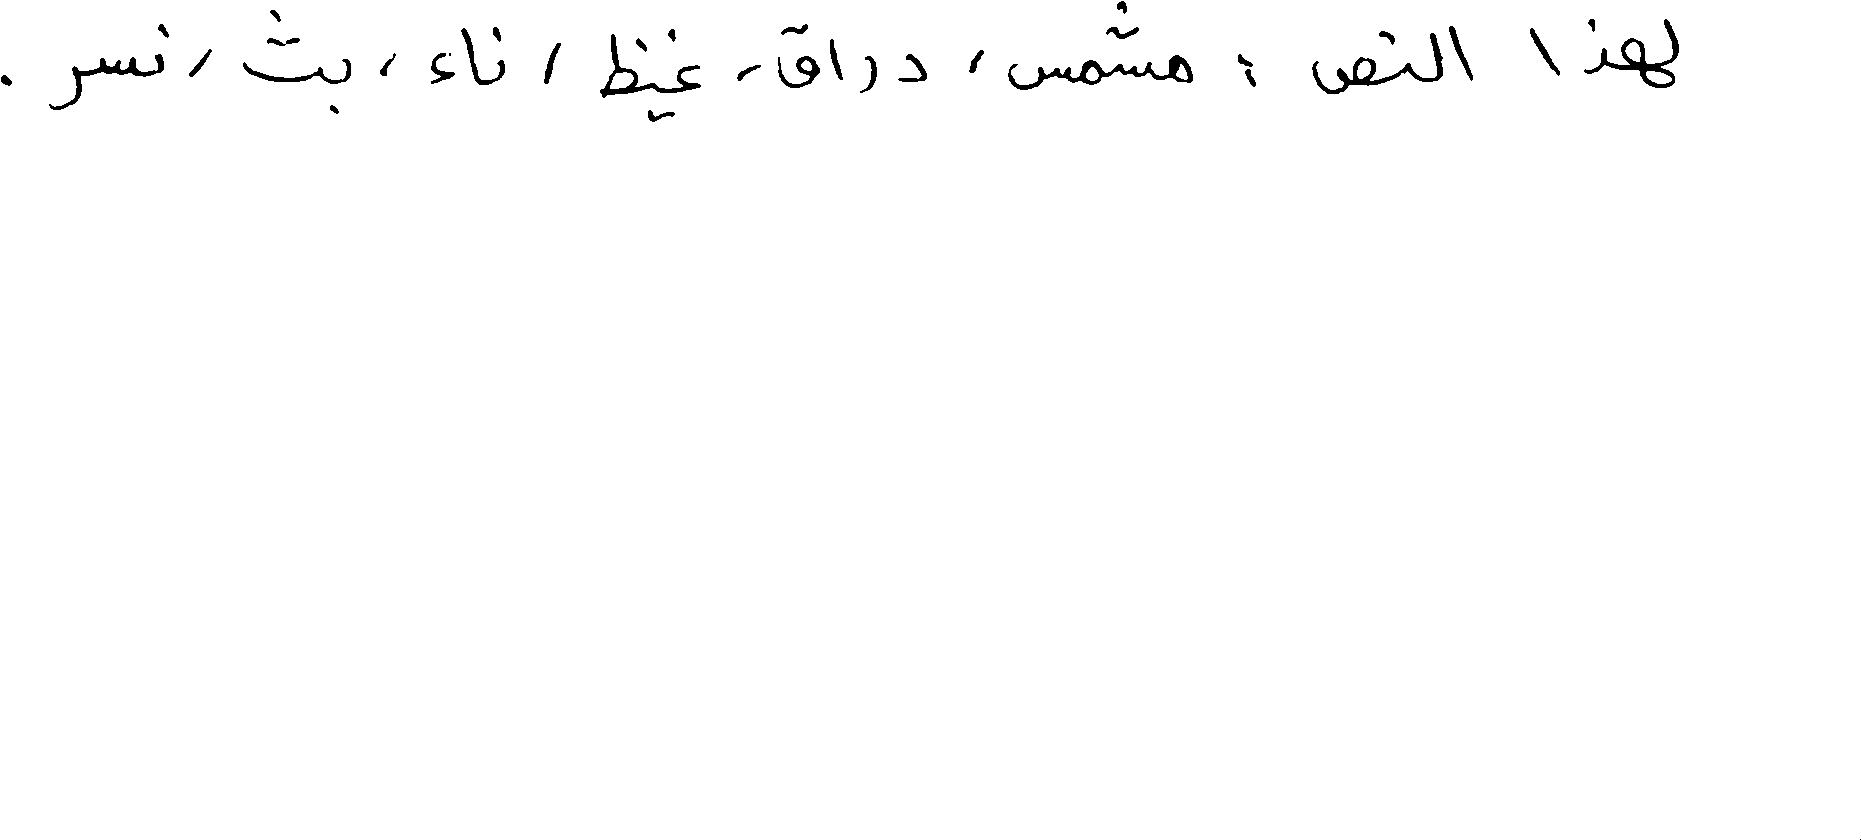 لهذا النص : مشمس، دراق، غيظ، ناء، بث، نسر.